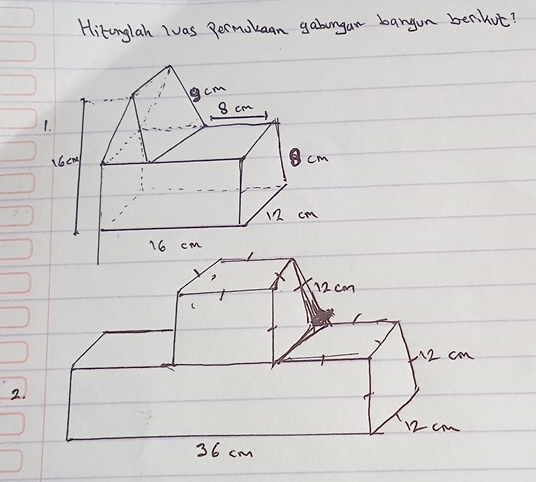 Hitunglah luas permukaan gabungan bangun berikut!
1.
9 cm
8 cm
16 cm
8 cm
12 cm
16 cm
2.
12 cm
12 cm
12 cm
36 cm